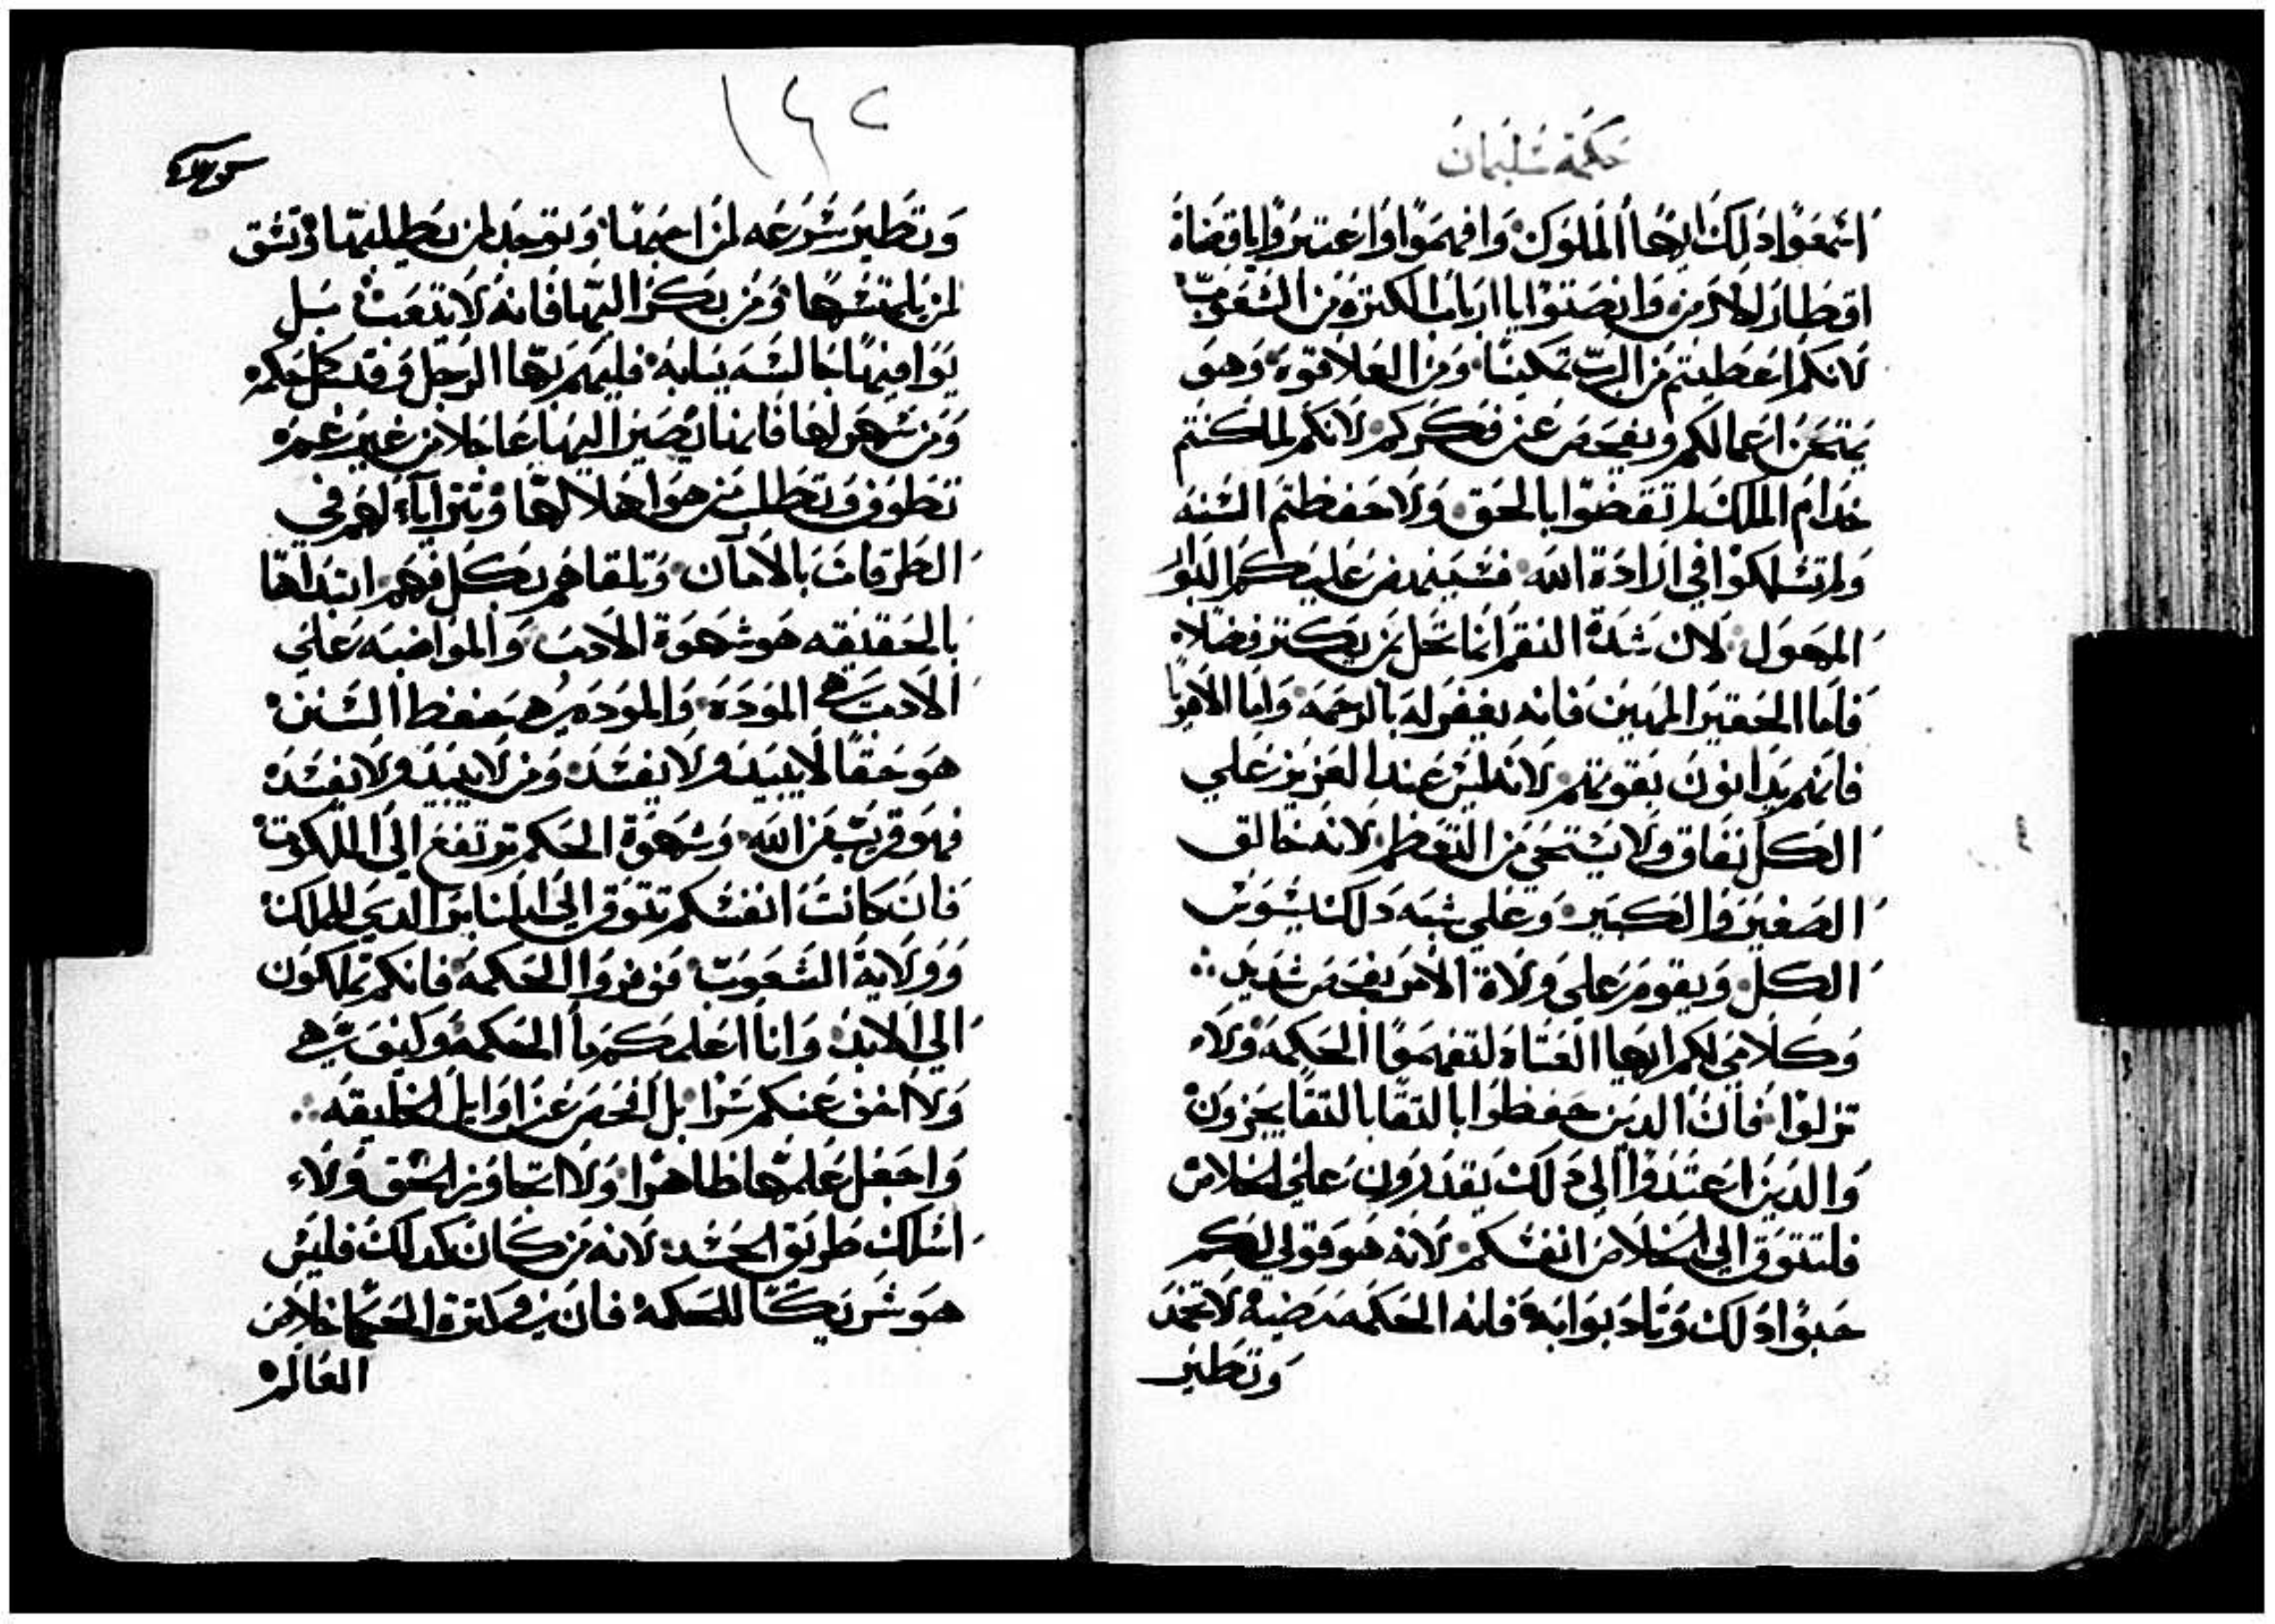 حكمة سليمان
اسمعوا دلك ايها الملوك وافهموا واعتبروا يا قضاة
اقطار الارض وانصتوا يا ارباب الكثرة من الشعوب
لانكم اعطيتم من الرب تمكينا ومن العلا قوة وهو
يمتحن اعمالكم ويفحص عن فكركم لانكم لما كنتم
خدام الملك لم تقضوا بالحق ولا حفظتم السنه
ولم تسلكوا في ارادة الله فسينهض عليكم البوار
المهول لان شدة النقم انما تحل بمن يكتر فضلاه
فاما الحقير المهين فانه يغفر له بالرحمه واما الاقويا
فانهم يدانون بقوتهم لانه ليس عند العزيز علي
الكل نفاق ولا يستحي من التعظم لانه خالق
الصغير والكبير وعلي شبه دلك يسوس
الكل ويقوم على ولاة الامر بفحص شديد
وكلامي لكم ايها العتاة لتفهموا الحكمة ولا
تزلوا فان الدين حفظوا بالتقا بالتقا يجزون
والدين اعتدوا الي دلك يقدرون علي الخلاص
فلتتوق الي الخلاص انفسكم لانه هو قولي لكم
حبوا دلك وتادبوا به فانه الحكمه مضيه لا تخمد
وتطير
١٤٢
وتطير سرعه لمن احبها وتوجد لمن يطلبها وتسق
لمن يلتمسها ومن بكر اليها فانه لا يتعب بل
يوافيها جالسه ببابه فليهم بها الرجل وقد كمل حكمه
ومن سهر لها فانما يصير اليها عاجلا من غير غمره
تطوف وتطلب من هو اهلا لها وتترايا لهم في
الطرقات بالامان وتلقاهم بكل فهم ابتداها
بالحقيقه هو شهوة الادب والمواضبه علي
الادب هي المودة والموده هي حفظ السنن
هو حقا لا يبيد ولا يفسد ومن لا يبيد ولا يفسد
فهو قريب من الله وشهوة الحكم ترتفع الي الملكوت
فان كانت انفسكم تتوق الي المنابر الدي للملك
وولاية الشعوب فوقروا الحكمة فانكم تملكون
الي الابد وانا اعلمكم ما الحكمة وكيف هي
ولا اخفي عنكم سرا بل افحص عن اوايل الخليقه
واجعل علمها ظاهرا ولا اتجاوز الحق ولا
اسلك طريق الحسد لانه من كان كدلك فليس
هو شريكا للحكمة فان في كترة الحكما خلاص
العالم